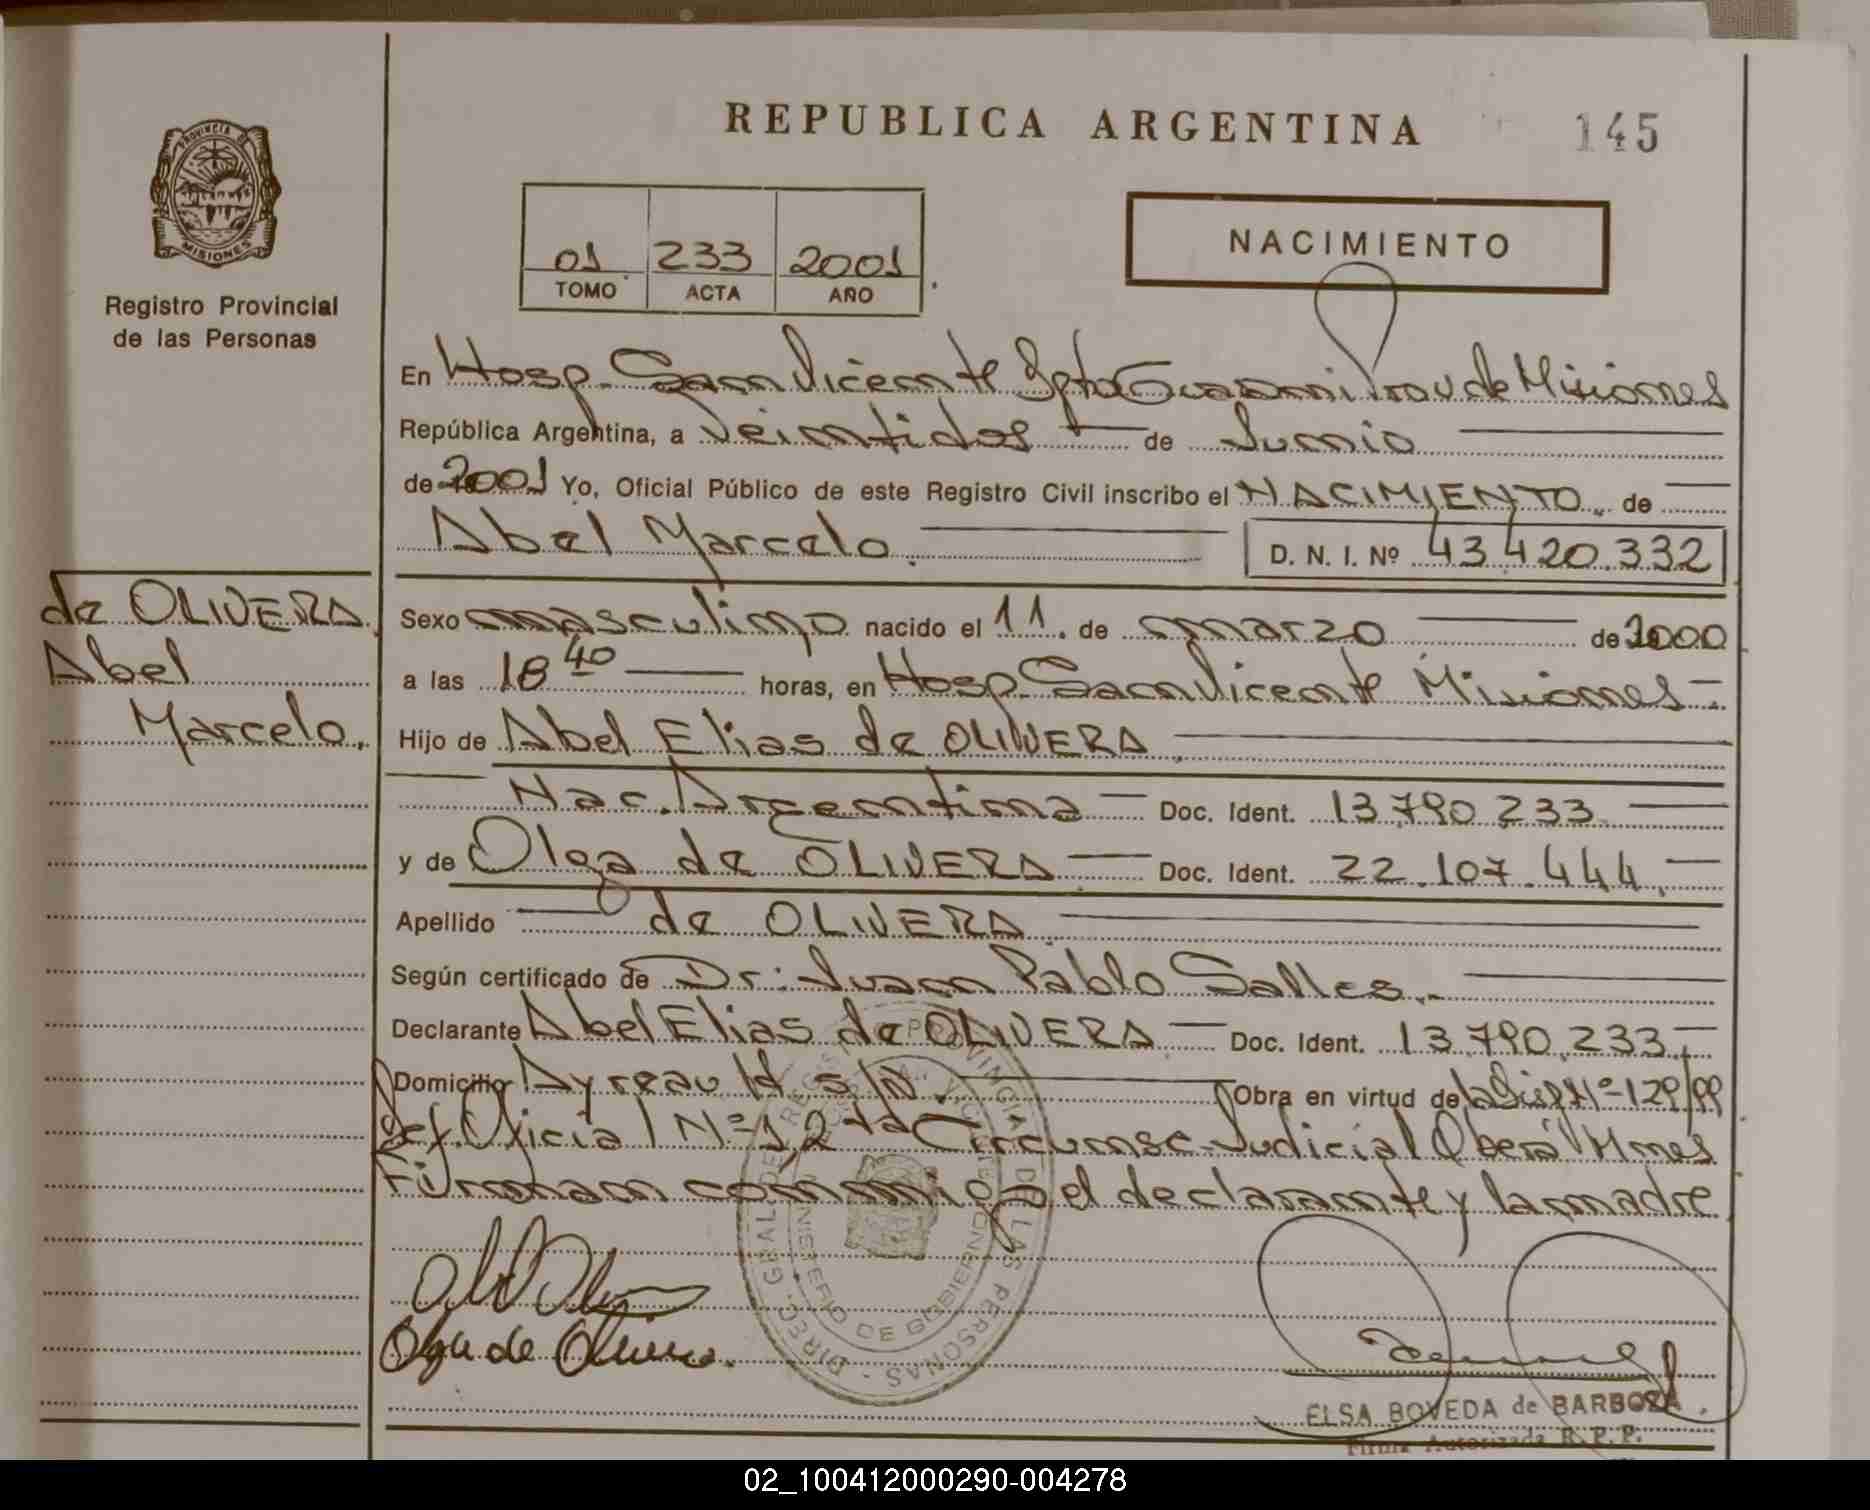 PROVINCIA DE
MISIONES
Registro Provincial
de las Personas
REPUBLICA ARGENTINA
145
01 233 2001
TOMO ACTA AÑO
NACIMIENTO
En Hosp. San Vicente Dpto Guarani Prov de Misiones
República Argentina, a veintidos de Junio
de 2001 Yo, Oficial Público de este Registro Civil inscribo el NACIMIENTO de
Abel Marcelo.
D. N. I. Nº 43.420.332
de OLIVERA
Abel
Marcelo.
Sexo masculino nacido el 11 de marzo de 2000
a las 18 40 horas, en Hosp. San Vicente Misiones
Hijo de Abel Elias de OLIVERA
Nac. Argentina Doc. Ident. 13.790.233
y de Olga de OLIVERA Doc. Ident. 22.107.444.
Apellido de OLIVERA
Según certificado de Dr: Juan Pablo Salles.
Declarante Abel Elias de OLIVERA Doc. Ident. 13.790.233
Domicilio s/N. Obra en virtud de la Disp Nº 129/99
Def. Oficial Nº 1, 2 da Circunsc. Judicial Oberá Mnes
Firman conmigo el declarante y la madre
Olga de Olivera.
DIREC. GRAL. DEL REGISTRO PROVINCIAL DE LAS PERSONAS
MINISTERIO DE GOBIERNO
ELSA BOVEDA de BARBOZA
Firma Autorizada R. P. P.
02_100412000290-004278